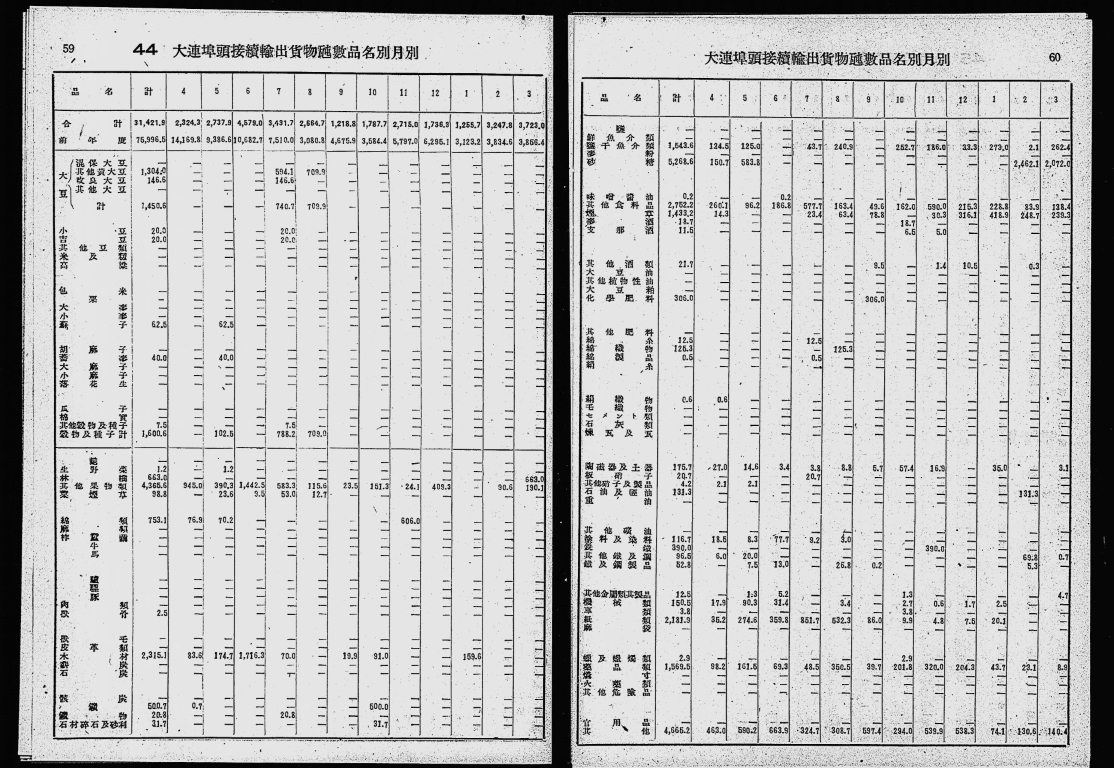 59 44 大連埠頭接續輸出貨物噸數品名別月別
品名 計 4 5 6 7 8 9 10 11 12 1 2 3
合計 31,421.9 2,324.3 2,737.9 4,579.0 3,431.7 2,664.7 1,218.8 1,787.7 2,715.0 1,736.3 1,255.7 3,247.8 3,723.0
前年度 75,996.5 14,169.8 9,386.6 10,682.7 7,510.0 3,080.8 4,675.9 3,584.4 5,797.0 6,295.1 3,123.2 3,834.6 3,856.4
大豆
混保大豆 — — — — — — — — — — — — —
其他黃大豆 1,304.0 — — — 594.1 709.9 — — — — — — —
改良大豆 146.6 — — — 146.6 — — — — — — — —
其他大豆 — — — — — — — — — — — — —
計 1,450.6 — — — 740.7 709.9 — — — — — — —
小豆 20.0 — — — 20.0 — — — — — — — —
吉豆 20.0 — — — 20.0 — — — — — — — —
其他豆類 — — — — — — — — — — — — —
米及籾 — — — — — — — — — — — — —
高粱 — — — — — — — — — — — — —
包米 — — — — — — — — — — — — —
粟 — — — — — — — — — — — — —
大麥 — — — — — — — — — — — — —
小麥 — — — — — — — — — — — — —
蘇子 62.5 — 62.5 — — — — — — — — — —
胡麻子 — — — — — — — — — — — — —
蕎麥 40.0 — 40.0 — — — — — — — — — —
大麻子 — — — — — — — — — — — — —
小麻子 — — — — — — — — — — — — —
落花生 — — — — — — — — — — — — —
瓜子 — — — — — — — — — — — — —
棉實 — — — — — — — — — — — — —
其他穀物及種子 7.5 — — — 7.5 — — — — — — — —
穀物及種子計 1,600.6 — 102.5 — 788.2 709.9 — — — — — — —
生野菜 1.2 — 1.2 — — — — — — — — — —
林檎 663.0 — — — — — — — — — — — 663.0
其他果物類 4,365.6 945.0 390.3 1,442.5 583.3 115.6 23.5 151.3 24.1 409.3 — 90.6 190.1
葉煙草 98.8 — 23.6 9.5 53.0 12.7 — — — — — — —
綿類 753.1 76.9 70.2 — — — — — 606.0 — — — —
麻類 — — — — — — — — — — — — —
柞蠶繭 — — — — — — — — — — — — —
牛 — — — — — — — — — — — — —
馬 — — — — — — — — — — — — —
驢 — — — — — — — — — — — — —
騾 — — — — — — — — — — — — —
豚 — — — — — — — — — — — — —
肉類 — — — — — — — — — — — — —
獸骨 2.5 — — — — — — — — — — — —
獸毛 — — — — — — — — — — — — —
皮革類 — — — — — — — — — — — — —
木材 2,315.1 83.6 174.7 1,716.3 70.0 — 19.9 91.0 — — 159.6 — —
薪炭 — — — — — — — — — — — — —
石炭 — — — — — — — — — — — — —
骸炭 — — — — — — — — — — — — —
銑鐵 500.7 0.7 — — — — — 500.0 — — — — —
鑛物 20.8 — — — 20.8 — — — — — — — —
石材碎石及砂利 31.7 — — — — — — 31.7 — — — — —
大連埠頭接續輸出貨物噸數品名別月別 60
品名 計 4 5 6 7 8 9 10 11 12 1 2 3
鹽 — — — — — — — — — — — — —
鮮魚介類 — — — — — — — — — — — — —
鹽干魚介類 1,543.6 134.5 125.0 — 43.7 240.9 — 252.7 186.0 33.3 273.0 2.1 262.4
麥粉 — — — — — — — — — — — — —
砂糖 5,268.6 150.7 583.8 — — — — — — — — 2,462.1 2,072.0
味噌醬油 0.2 — — 0.2 — — — — — — — — —
其他食料品 2,752.2 260.1 96.2 186.8 577.7 163.4 49.6 162.0 590.0 215.3 228.8 83.9 138.4
煙草 1,433.2 14.3 — — 23.4 63.4 78.8 — 30.3 316.1 418.9 248.7 239.3
麥酒 18.7 — — — — — — 18.7 — — — — —
支那酒 11.5 — — — — — — 6.5 5.0 — — — —
其他酒類 21.7 — — — — — 9.5 — 1.4 10.5 — 0.3 —
大豆油 — — — — — — — — — — — — —
其他植物性油 — — — — — — — — — — — — —
大豆粕 — — — — — — — — — — — — —
化學肥料 306.0 — — — — — 306.0 — — — — — —
其他肥料 — — — — — — — — — — — — —
綿糸 12.5 — — — 12.5 — — — — — — — —
綿織物 125.3 — — — — 125.3 — — — — — — —
綿製品 0.5 — — — 0.5 — — — — — — — —
絹糸 — — — — — — — — — — — — —
絹織物 0.6 0.6 — — — — — — — — — — —
毛織物 — — — — — — — — — — — — —
セメント類 — — — — — — — — — — — — —
石灰類 — — — — — — — — — — — — —
煉瓦及瓦 — — — — — — — — — — — — —
陶磁器及土器 175.7 27.0 14.6 3.4 3.8 8.8 5.7 57.4 16.9 — 35.0 — 3.1
板硝子 20.7 — — — 20.7 — — — — — — — —
其他硝子及製品 4.2 2.1 2.1 — — — — — — — — — —
石油及輕油 131.3 — — — — — — — — — — 131.3 —
重油 — — — — — — — — — — — — —
其他礦油 — — — — — — — — — — — — —
塗料及染料 116.7 18.5 8.3 77.7 9.2 3.0 — — — — — — —
390.0 — — — — — — — 390.0 — — — —
其他鐵及鋼 96.5 6.0 20.0 — — — — — — — — 69.8 0.7
鐵及鋼製品 52.8 — 7.5 13.0 — 26.8 0.2 — — — — 5.3 —
其他金屬類其製品 12.5 — 1.3 5.2 — — — 1.3 — — — — 4.7
機械類 150.5 17.9 90.3 31.4 — 3.4 — 2.7 0.6 1.7 2.5 — —
車類 3.8 — — — — — — 3.8 — — — — —
紙類 2,181.9 35.2 274.6 359.8 851.7 532.3 86.0 9.9 4.8 7.5 20.1 — —
麻袋 — — — — — — — — — — — — —
蠟及蠟燭類 2.9 — — — — — — 2.9 — — — — —
藥品類 1,569.5 98.2 161.5 69.3 48.5 350.5 39.7 201.8 320.0 204.3 43.7 23.1 8.9
燐寸 — — — — — — — — — — — — —
火藥類 — — — — — — — — — — — — —
其他危險品 — — — — — — — — — — — — —
官用品 — — — — — — — — — — — — —
其他 4,665.2 463.0 590.2 663.9 324.7 308.7 597.4 294.0 539.9 538.3 74.1 130.6 140.4